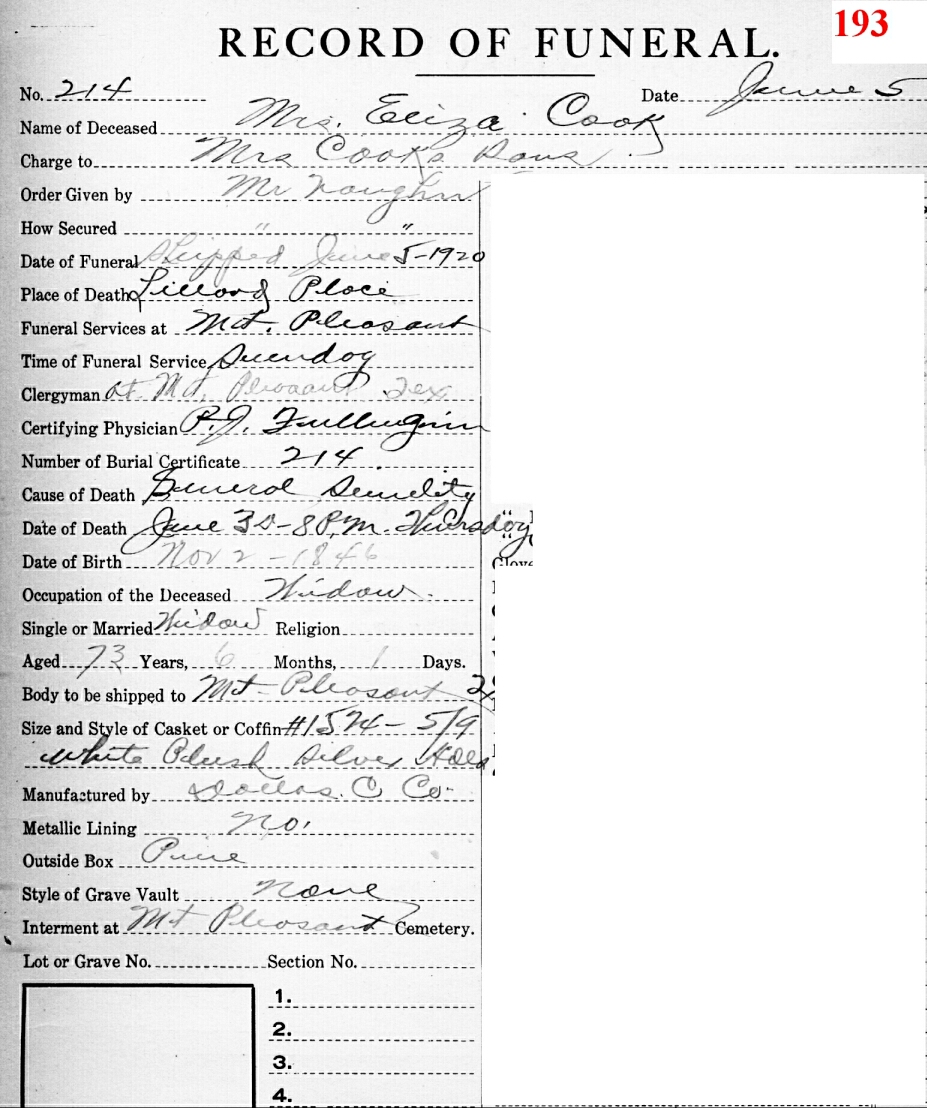 193
RECORD OF FUNERAL.
No. 214 Date June 5
Name of Deceased Mrs. Eliza Cook
Charge to Mrs Cook's
Order Given by Mr Vaughn
How Secured " "
Date of Funeral Shipped June 5-1920
Place of Death Place
Funeral Services at Mt. Pleasant
Time of Funeral Service Sunday
Clergyman at Mt. Pleasant Tex
Certifying Physician P.J. Fullingim
Number of Burial Certificate 214
Cause of Death General
Date of Death June 8 P.M. Thursday
Date of Birth Nov 2 - 1846
Occupation of the Deceased Widow
Single or Married Widow Religion
Aged 73 Years, 6 Months, 1 Days.
Body to be shipped to Mt Pleasant
Size and Style of Casket or Coffin #1524 - 5/9
White Plush Silver
Manufactured by Dallas C Co.
Metallic Lining No.
Outside Box Pine
Style of Grave Vault None
Interment at Mt Pleasant Cemetery.
Lot or Grave No. Section No.
1.
2.
3.
4.